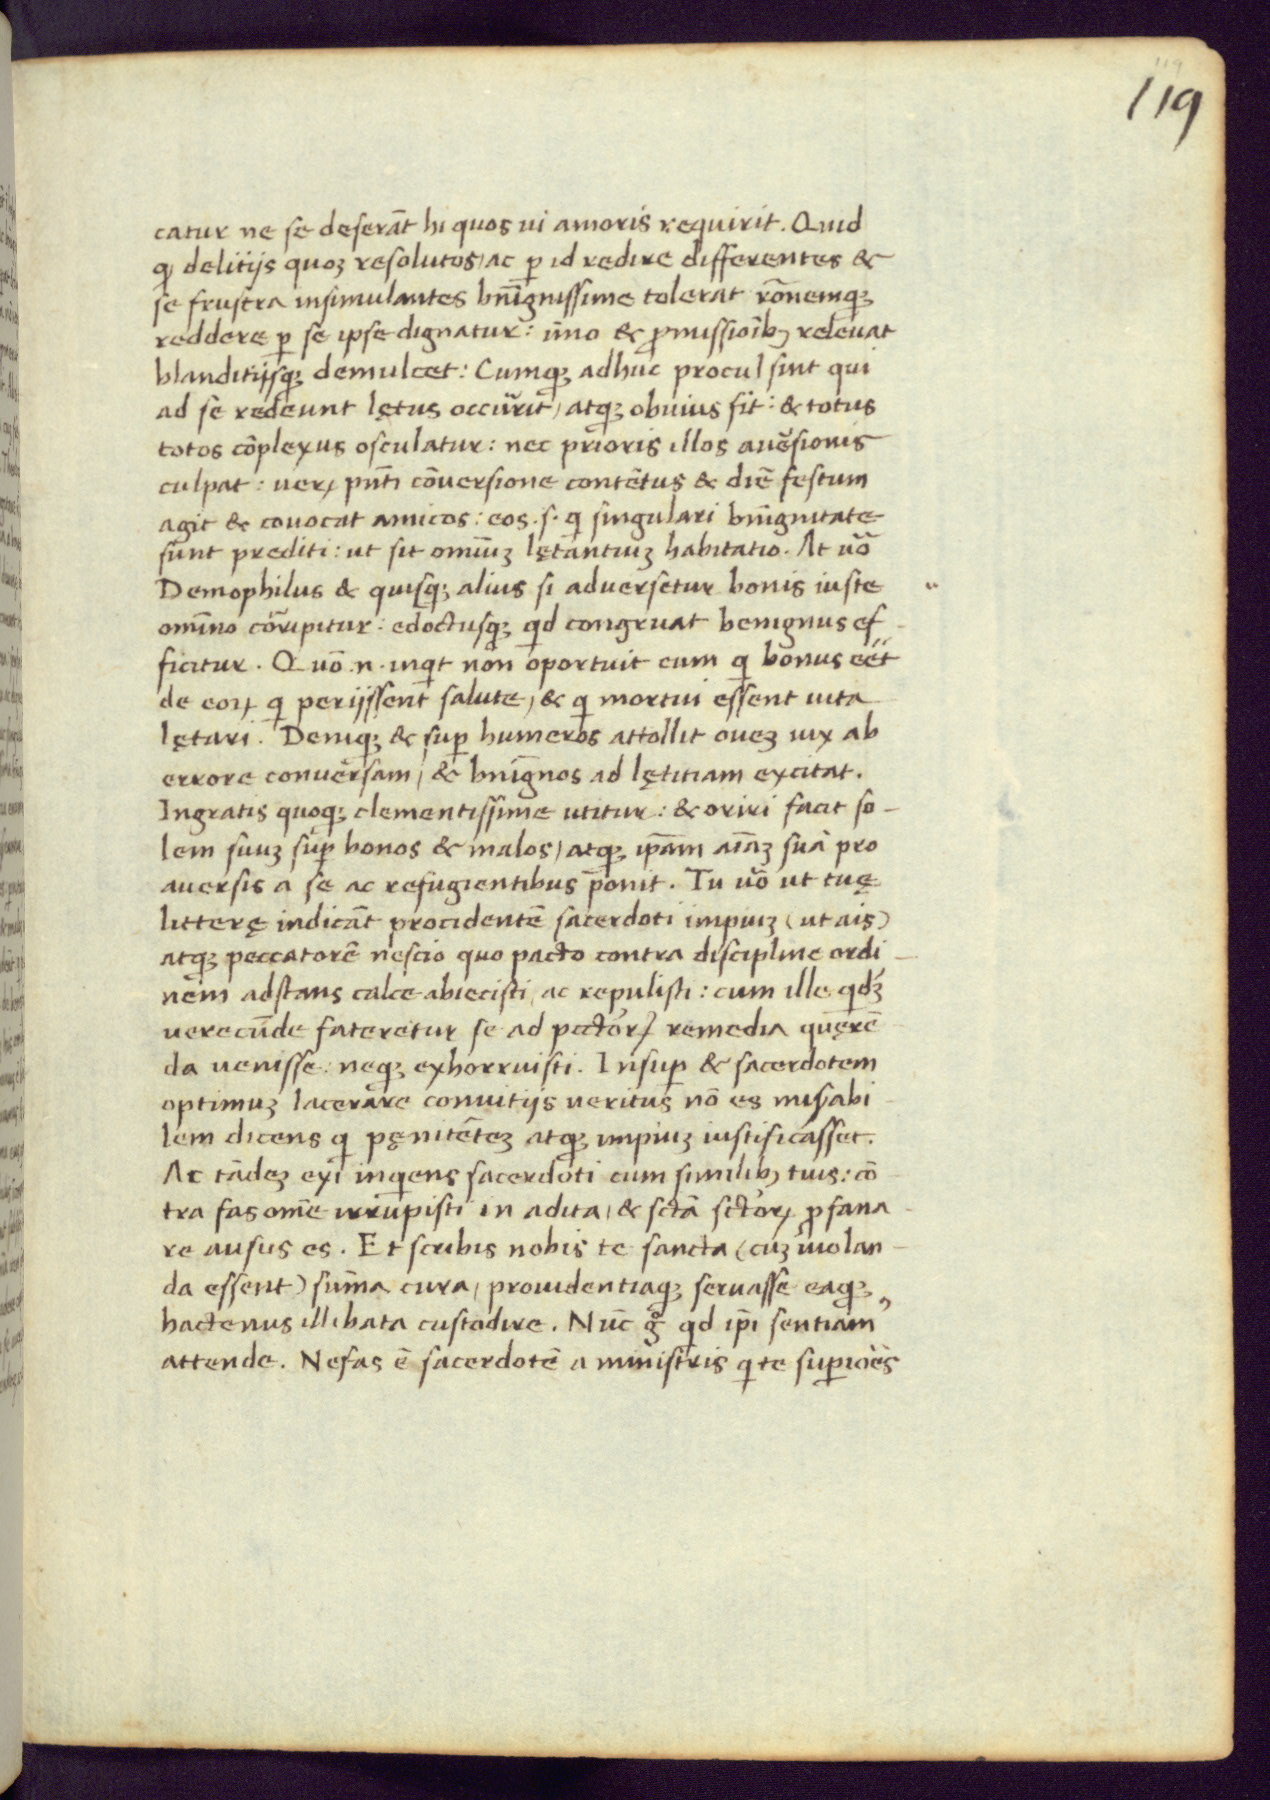 119
catur ne se deserāt hi quos ui amoris requirit. Quid
ꝙ delitijs quoꝫ resolutos, ac ꝑ id redire differentes &
se frustra insimulantes bn̄ignissime tolerat rōnemqꝫ
reddere ꝑ se ipse dignatur: īmo & ꝓmissioībꝫ releuat
blanditijsqꝫ demulcet: Cumqꝫ adhuc procul sint qui
ad se redeunt lętus occūrit, atqꝫ obuius fit: & totus
totos cōplexus osculatur: nec prioris illos auēsionis
culpat: ueꝝ pn̄ti cōuersione contētus & diē festum
agit & cōuocat amicos: eos .s. qͥ singulari bn̄ignitate
sunt prediti: ut sit omīuꝫ lętantiuꝫ habitatio. At uō
Demophilus & quisqꝫ alius si aduersetur bonis iuste
omīno cōrripitur: edoctusqꝫ qͥd congruat benignus ef
ficitur. Quō .n. inqͥt non oportuit eum qͥ bonus eēt
de eoꝝ qͥ perijssent salute, & qͥ mortui essent uita
lętari. Deniqꝫ & suꝑ humeros attollit oueꝫ uix ab
errore conuersam, & bn̄ignos ad lętitiam excitat.
Ingratis quoqꝫ clementissime utitur: & oriri facit so-
lem suuꝫ suꝑ bonos & malos, atqꝫ ip̄am aīaꝫ suā pro
auersis a se ac refugientibus p̄onit. Tu uō ut tuę
litterę indicāt procidentē sacerdoti impiuꝫ (ut ais)
atqꝫ peccatorē nescio quo pacto contra discipline ordi-
nem adstans calce abiecisti, ac repulisti: cum ille qͥdꝫ
uerecūde fateretur se ad pctōꝝ remedia quęrē
da uenisse: neqꝫ exhorruisti. Insuꝑ & sacerdotem
optimuꝫ lacerare conuitijs ueritus nō es mis̄abi-
lem dicens qͥ pęnitēteꝫ atqꝫ impiuꝫ iustificasset.
Ac tādeꝫ exi inqͥens sacerdoti cum similibꝫ tuis: cō-
tra fas omē irrupisti in adita, & sctā sctōꝝ ꝓfana-
re ausus es. Et scribis nobis te sancta (cuꝫ uiolan-
da essent) sūma cura, prouidentiaqꝫ seruasse eaqꝫ
hactenus illibata custodire. Nūc gͦ qͥd ip̄i sentiam
attende. Nefas ē sacerdotē a ministris qͥ te suꝑioēs